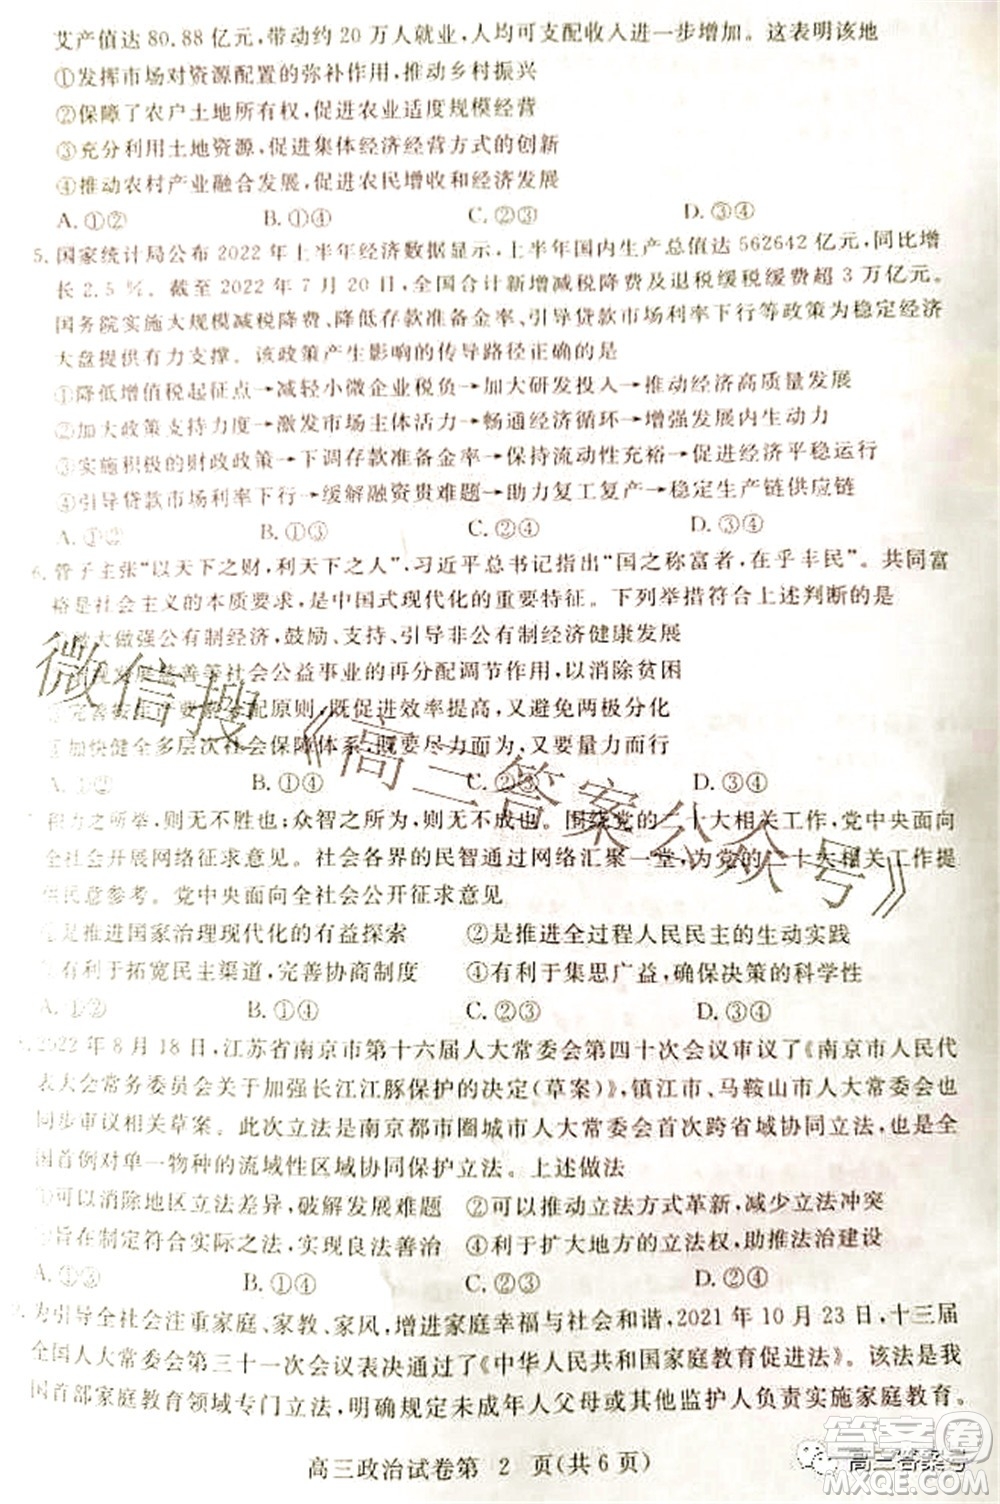 艾产值达 80.88 亿元,带动约 20 万人就业,人均可支配收入进一步增加。这表明该地
①发挥市场对资源配置的弥补作用,推动乡村振兴
②保障了农户土地所有权,促进农业适度规模经营
③充分利用土地资源,促进集体经济经营方式的创新
④推动农村产业融合发展,促进农民增收和经济发展
A.①② B.①④ C.②③ D.③④
5.国家统计局公布 2022 年上半年经济数据显示,上半年国内生产总值达 562642 亿元,同比增
长 2.5 %。截至 2022 年 7 月 20 日,全国合计新增减税降费及退税缓税缓费超 3 万亿元。
国务院实施大规模减税降费、降低存款准备金率、引导贷款市场利率下行等政策为稳定经济
大盘提供有力支撑。该政策产生影响的传导路径正确的是
①降低增值税起征点→减轻小微企业税负→加大研发投入→推动经济高质量发展
②加大政策支持力度→激发市场主体活力→畅通经济循环→增强发展内生动力
③实施积极的财政政策→下调存款准备金率→保持流动性充裕→促进经济平稳运行
④引导贷款市场利率下行→缓解融资贵难题→助力复工复产→稳定生产链供应链
A.①② B.①③ C.②④ D.③④
6.管子主张“以天下之财,利天下之人”,习近平总书记指出“国之称富者,在乎丰民”。共同富
裕是社会主义的本质要求,是中国式现代化的重要特征。下列举措符合上述判断的是
做大做强公有制经济,鼓励、支持、引导非公有制经济健康发展
发展慈善等社会公益事业的再分配调节作用,以消除贫困
配原则,既促进效率提高,又避免两极分化
加快健全多层次社会保障体系,既尽力而为又量力而行
A.①② B.①④ C.②③ D.③④
积力之所举,则无不胜也;众智之所为,则无不成也。围绕党的二十大相关工作,党中央面向
全社会开展网络征求意见。社会各界的民智通过网络汇聚一堂,为党的二十大相关工作提
供民意参考。党中央面向全社会公开征求意见
①是推进国家治理现代化的有益探索 ②是全过程人民民主的生动实践
有利于拓宽民主渠道,完善协商制度 ④有利于集思广益,确保决策的科学性
A.①② B.①④ C.②③ D.③④
2022 年 8 月 18 日,江苏省南京市第十六届人大常委会第四十次会议审议了《南京市人民代
表大会常务委员会关于加强长江江豚保护的决定(草案)》,镇江市、马鞍山市人大常委会也
同步审议相关草案。此次立法是南京都市圈城市人大常委会首次跨省域协同立法,也是全
国首例对单一物种的流域性区域协同保护立法。上述做法
①可以消除地区立法差异,破解发展难题 ②可以推动立法方式革新,减少立法冲突
旨在制定符合实际之法,实现良法善治 ④利于扩大地方的立法权,助推法治建设
A.①② B.①④ C.②③ D.②④
为引导全社会注重家庭、家教、家风,增进家庭幸福与社会和谐,2021 年 10 月 23 日,十三届
全国人大常委会第三十一次会议表决通过了《中华人民共和国家庭教育促进法》。该法是我
国首部家庭教育领域专门立法,明确规定未成年人父母或者其他监护人负责实施家庭教育。
高三政治试卷第 2 页(共 6 页)
微信搜《高三答案公众号》
答案卷
高三答案号